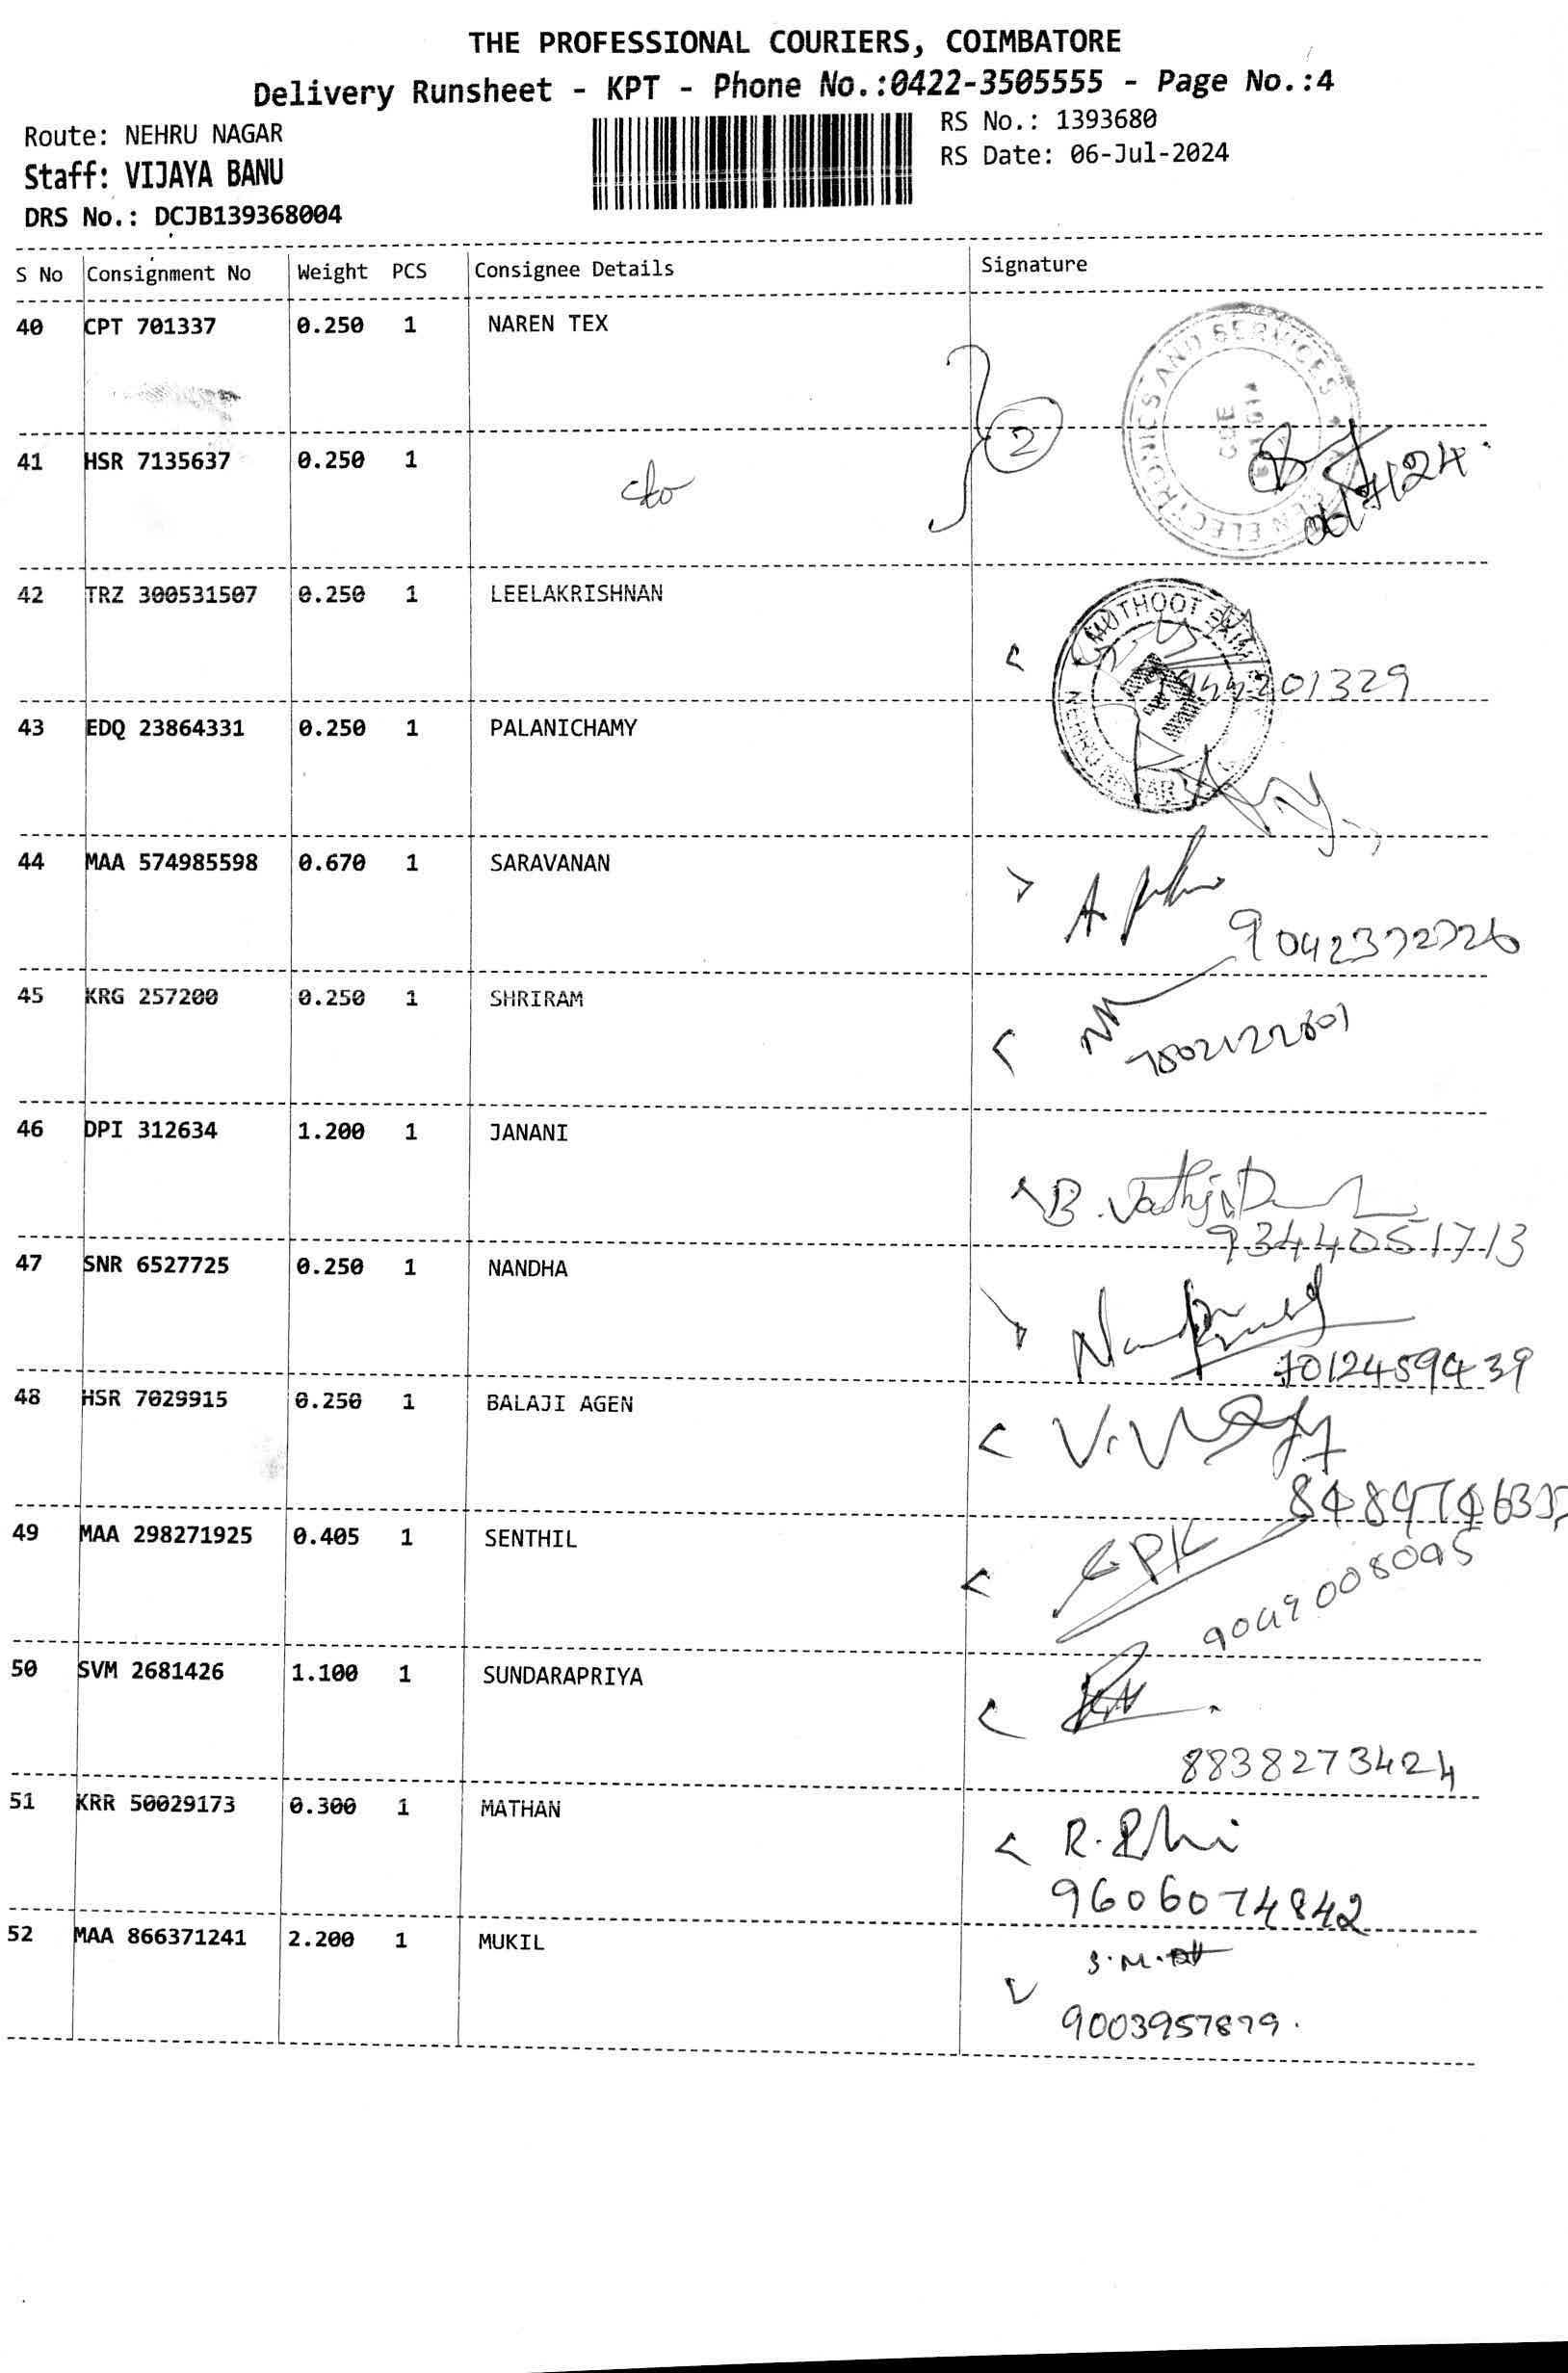 THE PROFESSIONAL COURIERS, COIMBATORE
Delivery Runsheet - KPT - Phone No.:0422-3505555 - Page No.:4
Route: NEHRU NAGAR
RS No.: 1393680
Staff: VIJAYA BANU
RS Date: 06-Jul-2024
DRS No.: DCJB139368004
S No Consignment No Weight PCS Consignee Details Signature
40 CPT 701337 0.250 1 NAREN TEX
2
41 HSR 7135637 0.250 1
42 TRZ 300531507 0.250 1 LEELAKRISHNAN
MUTHOOT EXIM
NEHRU NAGAR
43 EDQ 23864331 0.250 1 PALANICHAMY
44 MAA 574985598 0.670 1 SARAVANAN
45 KRG 257200 0.250 1 SHRIRAM
46 DPI 312634 1.200 1 JANANI
9344051713
47 SNR 6527725 0.250 1 NANDHA
48 HSR 7029915 0.250 1 BALAJI AGEN
49 MAA 298271925 0.405 1 SENTHIL
50 SVM 2681426 1.100 1 SUNDARAPRIYA
8838273424
51 KRR 50029173 0.300 1 MATHAN
9606074842
52 MAA 866371241 2.200 1 MUKIL
9003957879.